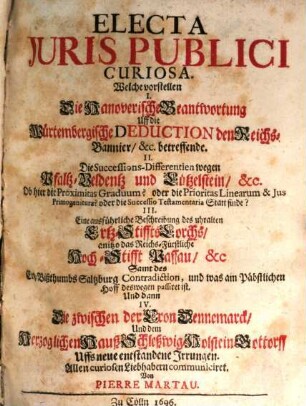 ELECTA
JURIS PUBLICI
CURIOSA.
Welche vorstellen
I.
Die Hanoverische Beantwortung
Uff die
Würtembergische DEDUCTION den Reichs-
Bannier / &c. betreffende.
II.
Die Successions-Differentien wegen
Pfaltz-Veldentz und Lützelstein / &c.
Ob hier die Proximitas Graduum? oder die Prioritas Linearum & Jus
Primogenituræ? oder die Successio Testamentaria Statt finde?
III.
Eine ausführliche Beschreibung des uhralten
Ertz-Stiffts Lorchs /
anitzo das Reichs-Fürstliche
Hoch-Stifft Passau / &c
Samt des
Ertz-Bißthumbs Saltzburg Contradiction, und was am Päbstlichen
Hoff deswegen passiret ist.
Und dann
IV.
Die zwischen der Cron Dennemarck /
Und dem
Herzoglichen Hauß Schleßwig Holstein Gottorff
Uffs neue entstandene Irrungen.
Allen curiosen Liebhabern communiciret.
Von
PIERRE MARTAU.
Zu Cölln 1696.